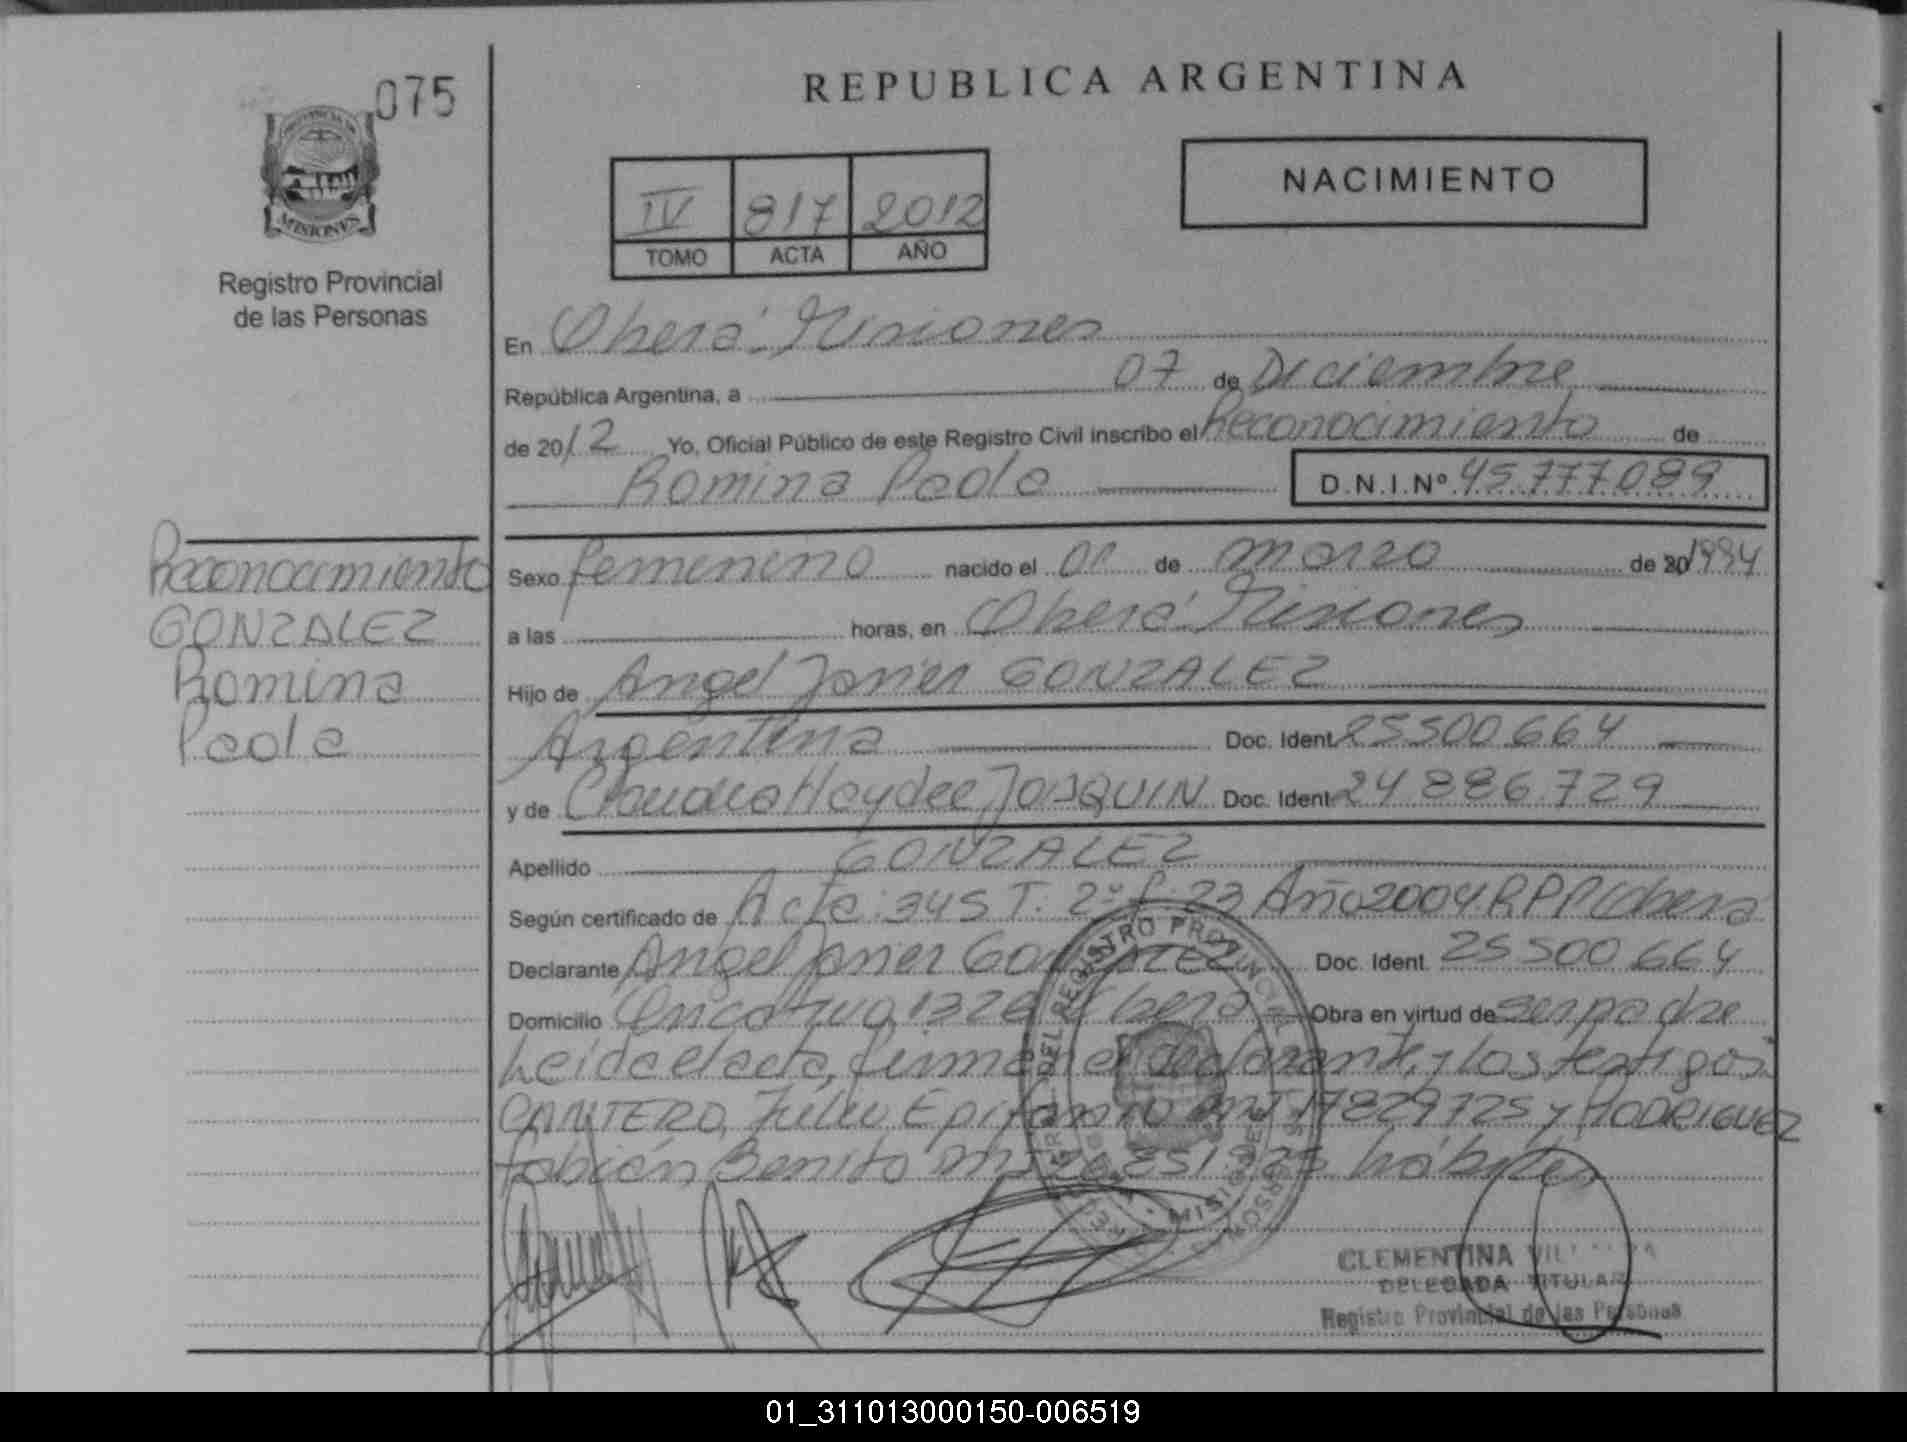 075
REPUBLICA ARGENTINA
NACIMIENTO
IV 817 2012
TOMO ACTA AÑO
MISIONES
Registro Provincial
de las Personas
En Oberá Misiones
República Argentina, a 07 de Diciembre
de 2012 Yo, Oficial Público de este Registro Civil inscribo el Reconocimiento de
Romina Paola D.N.I.Nº 45.777.089
Reconocimiento
GONZALEZ
Romina
Paola
Sexo femenino nacido el 01 de marzo de 1994
a las horas, en Oberá Misiones
Hijo de Angel Javier GONZALEZ
Argentina Doc. Ident 25500664
y de Claudia Haydee JOAQUIN Doc. Ident 24886729
Apellido GONZALEZ
Según certificado de Acta: 345 T. 2º f: 23 Año 2004 RPP Oberá
Declarante Angel Javier GONZALEZ Doc. Ident. 25500664
Domicilio 1326 Oberá Obra en virtud de ser padre
Leida el acta, firman el declarante, y los testigos:
CANTERO, Julio Epifanio MI 17829725 y RODRIGUEZ
Fabián Benito hábiles
CLEMENTINA
DELEGADA TITULAR
Registro Provincial de las Personas
01_311013000150-006519